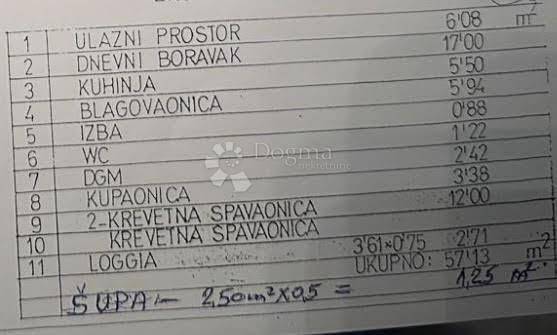 6'08 m²
1 ULAZNI PROSTOR 17'00
2 DNEVNI BORAVAK 5'50
3 KUHINJA 5'94
4 BLAGOVAONICA 0'88
5 IZBA 1'22
6 WC 2'42
7 DGM 3'38
8 KUPAONICA 12'00
9 2-KREVETNA SPAVAONICA
10 KREVETNA SPAVAONICA 3'61×0'75 2'71
11 LOGGIA UKUPNO: 57'13 m²
ŠUPA - 2,50 m² x 0,5 = 1,25 m²
Dogma
nekretnine